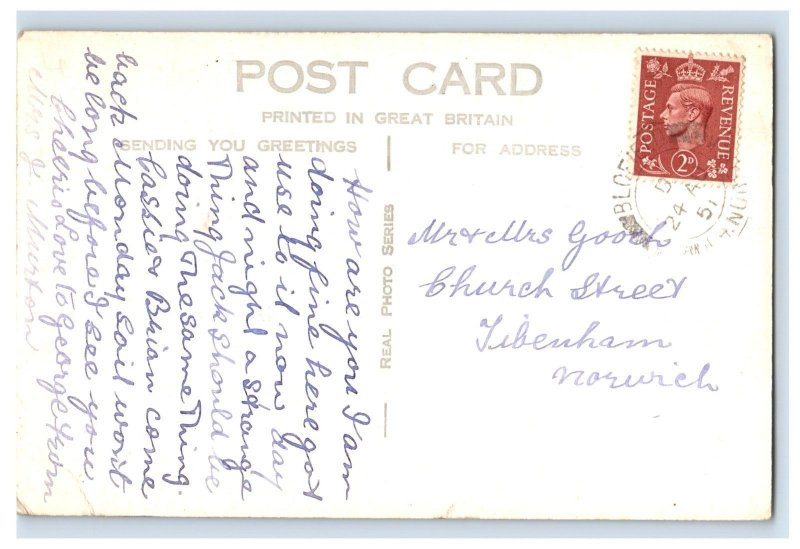 POST CARD
PRINTED IN GREAT BRITAIN
SENDING YOU GREETINGS
FOR ADDRESS
REAL PHOTO SERIES
POSTAGE
REVENUE
2D
24 A
51
Mr & Mrs Gooch
Church Street
Tibenham
Norwich
How are you I am
doing fine here got
use to it now day
and night a strange
Thing Jack should be
doing The same Thing.
Cassie & Brian come
back Monday so it won't
be long before I see you
Cheerio Love to George from
Mrs J. Murton